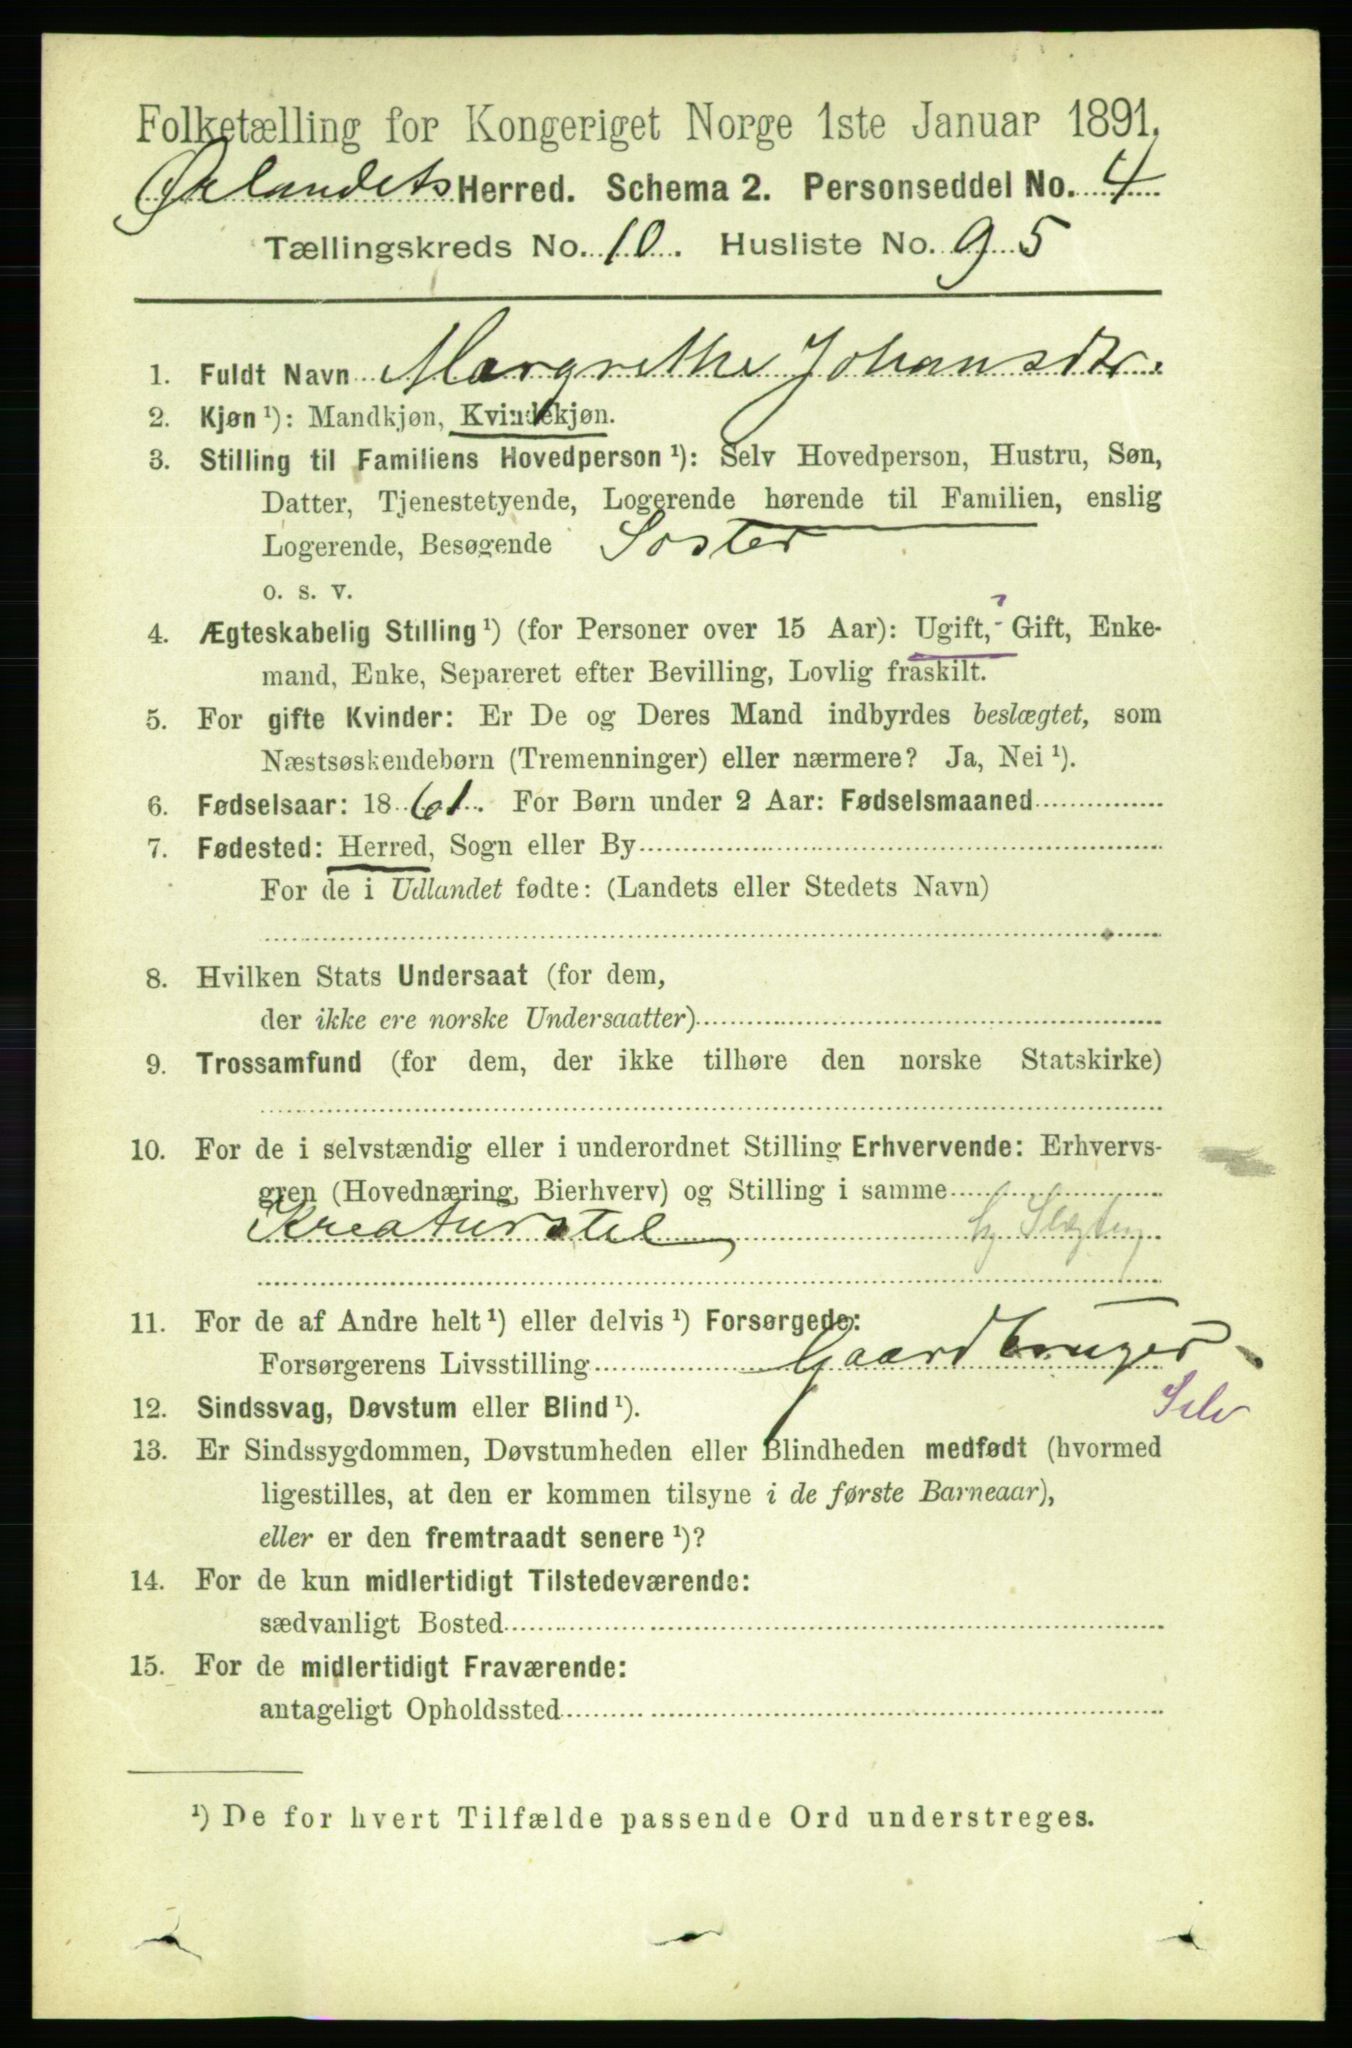 Folketælling for Kongeriget Norge 1ste Januar 1891.
Ørlandets Herred. Schema 2. Personseddel No. 4
Tællingskreds No. 10. Husliste No. 95
1. Fuldt Navn Margrethe Johansdtr.
2. Kjøn ¹): Mandkjøn, Kvindekjøn.
3. Stilling til Familiens Hovedperson ¹): Selv Hovedperson, Hustru, Søn,
Datter, Tjenestetyende, Logerende hørende til Familien, enslig
Logerende, Besøgende Søster
o. s. v.
4. Ægteskabelig Stilling ¹) (for Personer over 15 Aar): Ugift, Gift, Enke-
mand, Enke, Separeret efter Bevilling, Lovlig fraskilt.
5. For gifte Kvinder: Er De og Deres Mand indbyrdes beslægtet, som
Næstsøskendebørn (Tremenninger) eller nærmere? Ja, Nei ¹).
6. Fødselsaar: 1861. For Børn under 2 Aar: Fødselsmaaned
7. Fødested: Herred, Sogn eller By
For de i Udlandet fødte: (Landets eller Stedets Navn)
8. Hvilken Stats Undersaat (for dem,
der ikke ere norske Undersaatter)
9. Trossamfund (for dem, der ikke tilhøre den norske Statskirke)
10. For de i selvstændig eller i underordnet Stilling Erhvervende: Erhvervs-
gren (Hovednæring, Bierhverv) og Stilling i samme
Kreaturstel
11. For de af Andre helt ¹) eller delvis ¹) Forsørgede:
Forsørgerens Livsstilling Gaardbruger
Selv
12. Sindssvag, Døvstum eller Blind ¹).
13. Er Sindssygdommen, Døvstumheden eller Blindheden medfødt (hvormed
ligestilles, at den er kommen tilsyne i de første Barneaar),
eller er den fremtraadt senere ¹)?
14. For de kun midlertidigt Tilstedeværende:
sædvanligt Bosted
15. For de midlertidigt Fraværende:
antageligt Opholdssted
¹) De for hvert Tilfælde passende Ord understreges.